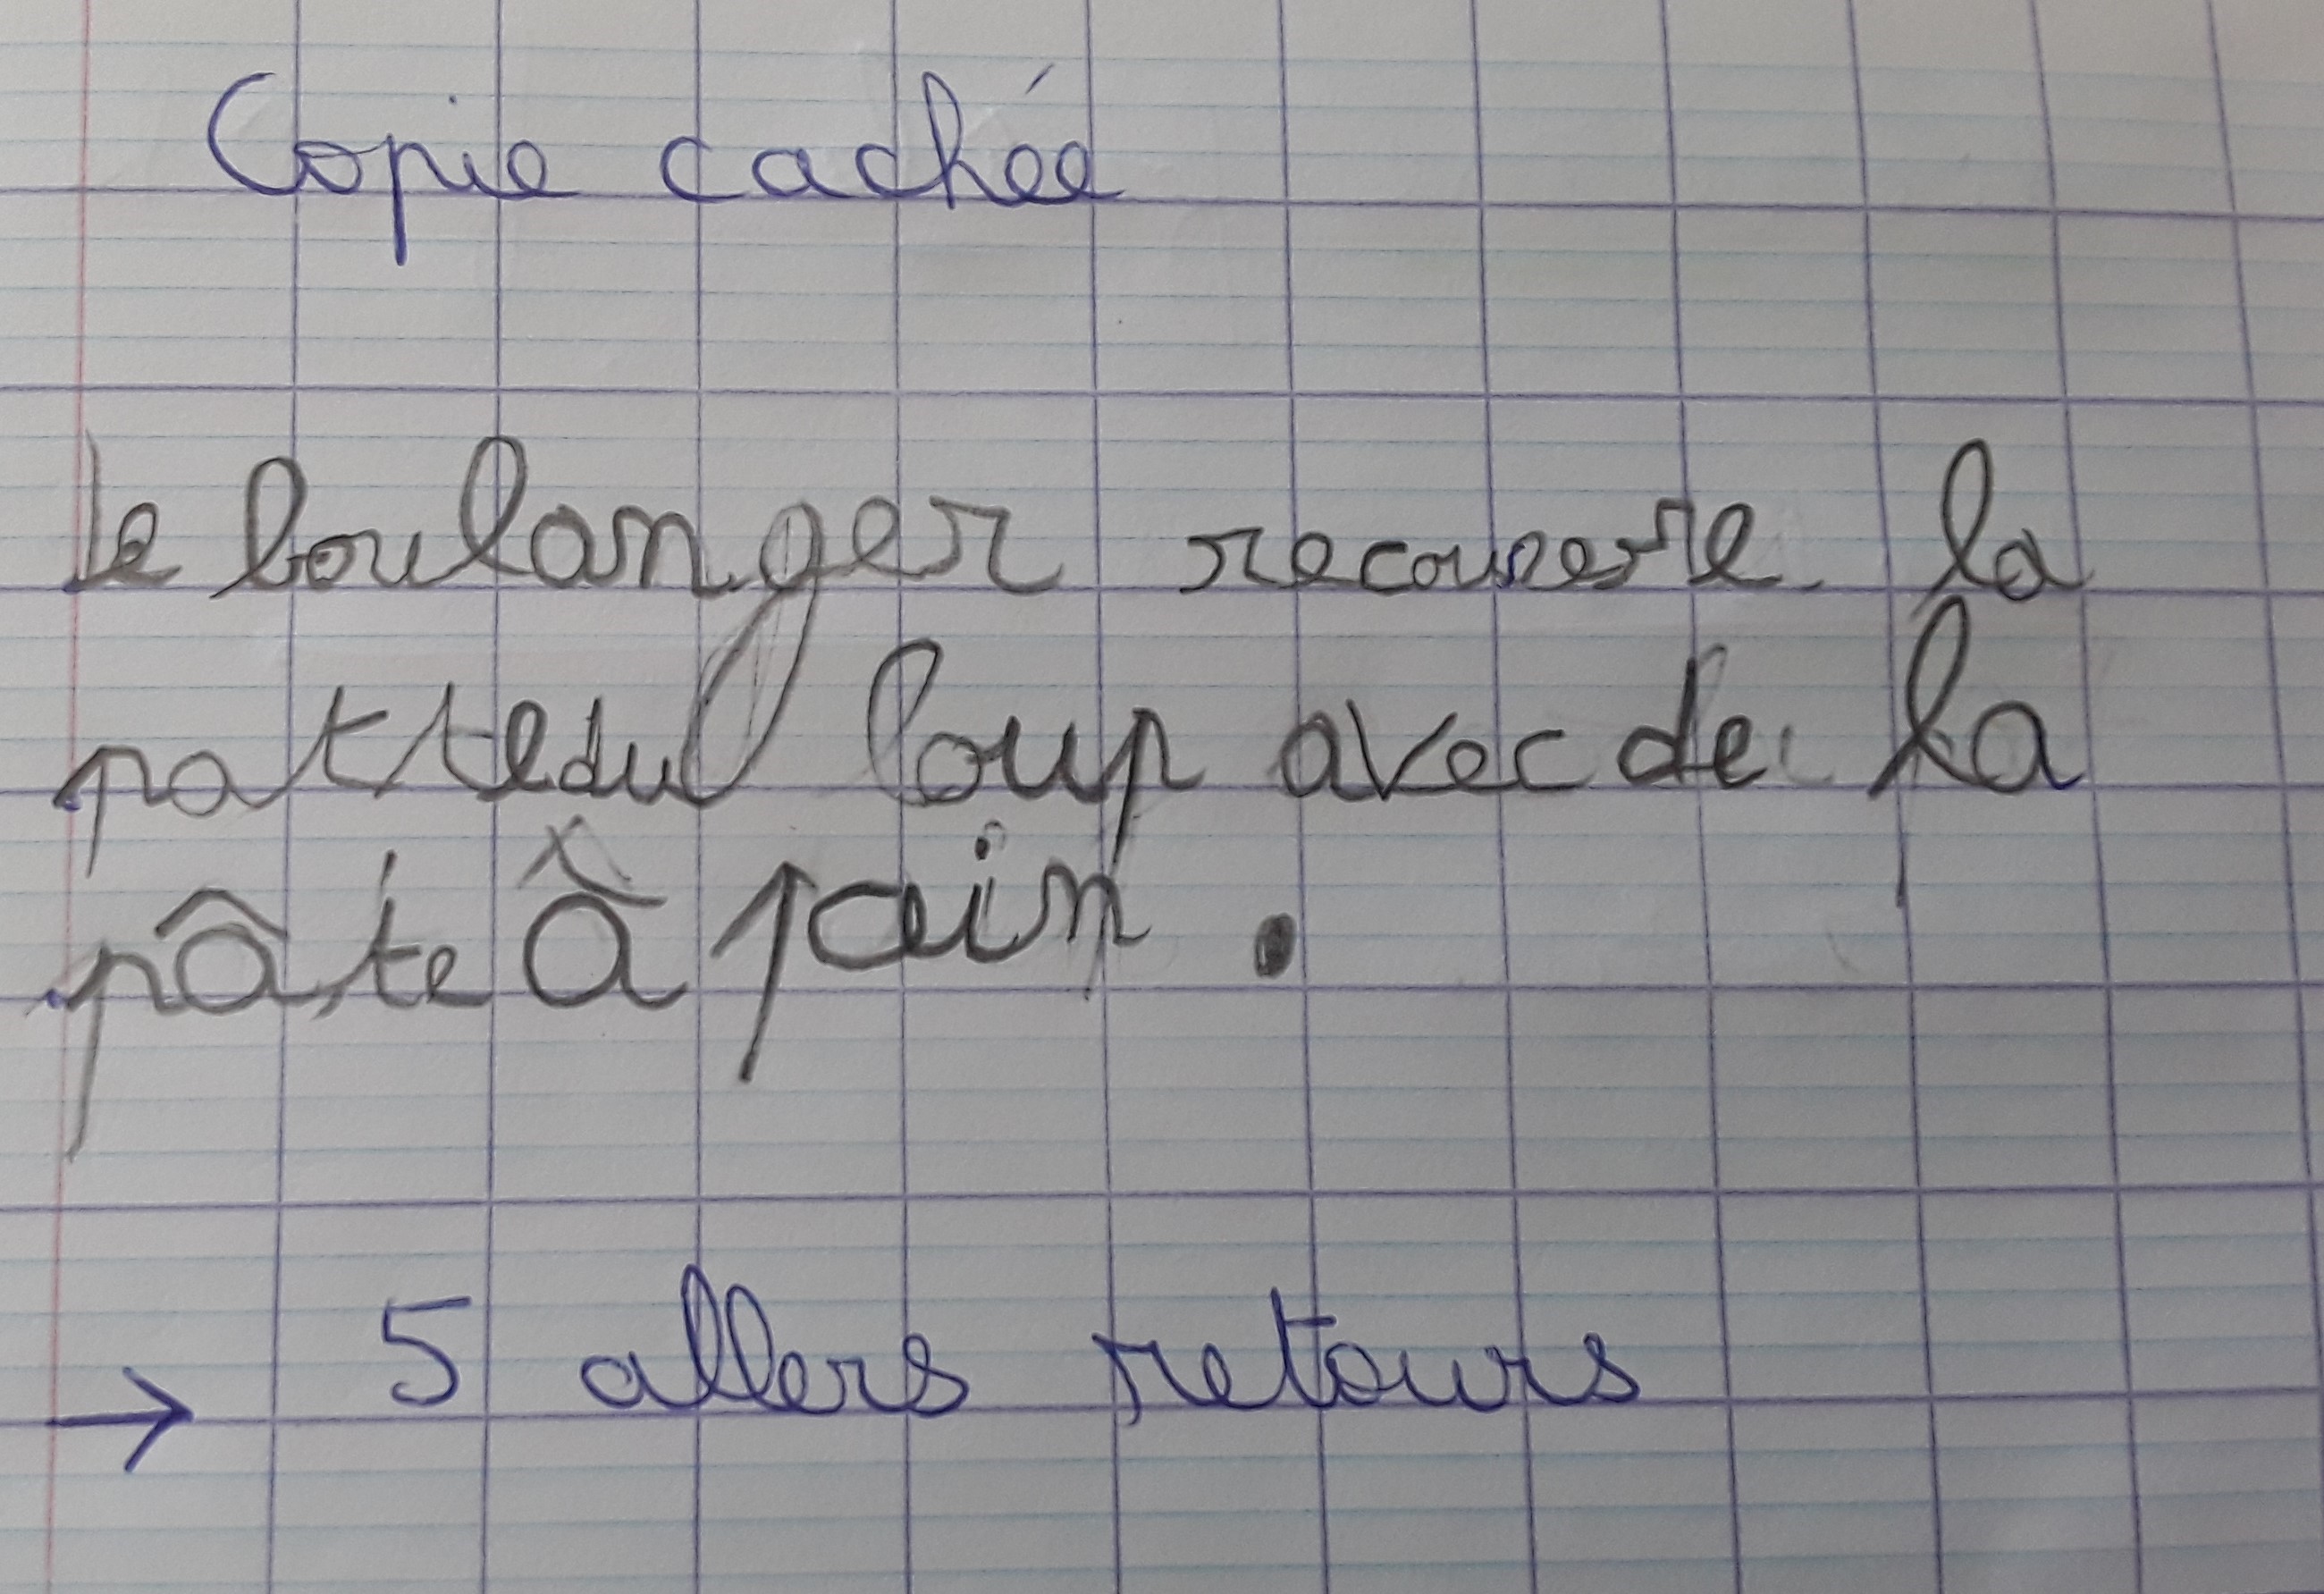 Copie cachée
le boulanger recouvere la
patte du loup avec de la
pâte â pain.
→ 5 allers retours